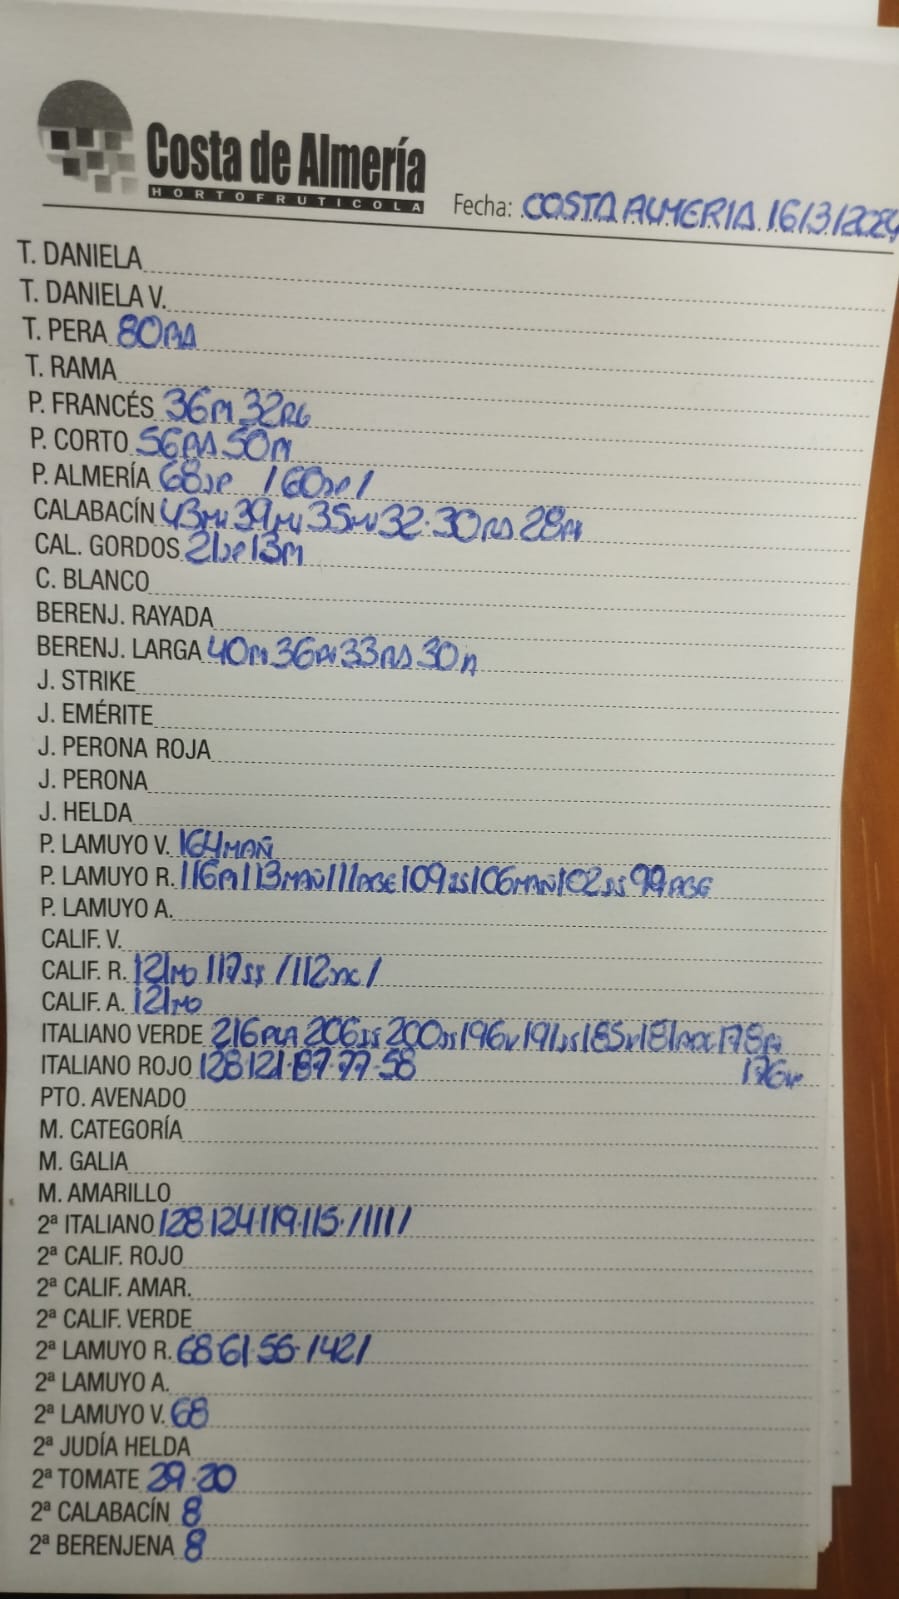 Costa de Almería
HORTOFRUTICOLA
Fecha: COSTA ALMERIA 16/3/2024
T. DANIELA
T. DANIELA V.
T. PERA 80
T. RAMA
P. FRANCÉS 36M 32
P. CORTO 56 50M
P. ALMERÍA 68 /60 /
CALABACÍN 43 39 35 32·30 28
CAL. GORDOS 21 13M
C. BLANCO
BERENJ. RAYADA
BERENJ. LARGA 40 36 33 30
J. STRIKE
J. EMÉRITE
J. PERONA ROJA
J. PERONA
J. HELDA
P. LAMUYO V. 164MAÑ
P. LAMUYO R. 116 113MAÑ 111AGE 109 106MAÑ 102 99AGE
P. LAMUYO A.
CALIF. V.
CALIF. R. 121MO 117SS /112 /
CALIF. A. 121MO
ITALIANO VERDE 216PLA 206 200 196 191 185 181 178
ITALIANO ROJO 128·121·87·77·58 176
PTO. AVENADO
M. CATEGORÍA
M. GALIA
M. AMARILLO
2ª ITALIANO 128·124·119·115·/111/
2ª CALIF. ROJO
2ª CALIF. AMAR.
2ª CALIF. VERDE
2ª LAMUYO R. 68·61·56·/42/
2ª LAMUYO A.
2ª LAMUYO V. 68
2ª JUDÍA HELDA
2ª TOMATE 29·20
2ª CALABACÍN 8
2ª BERENJENA 8